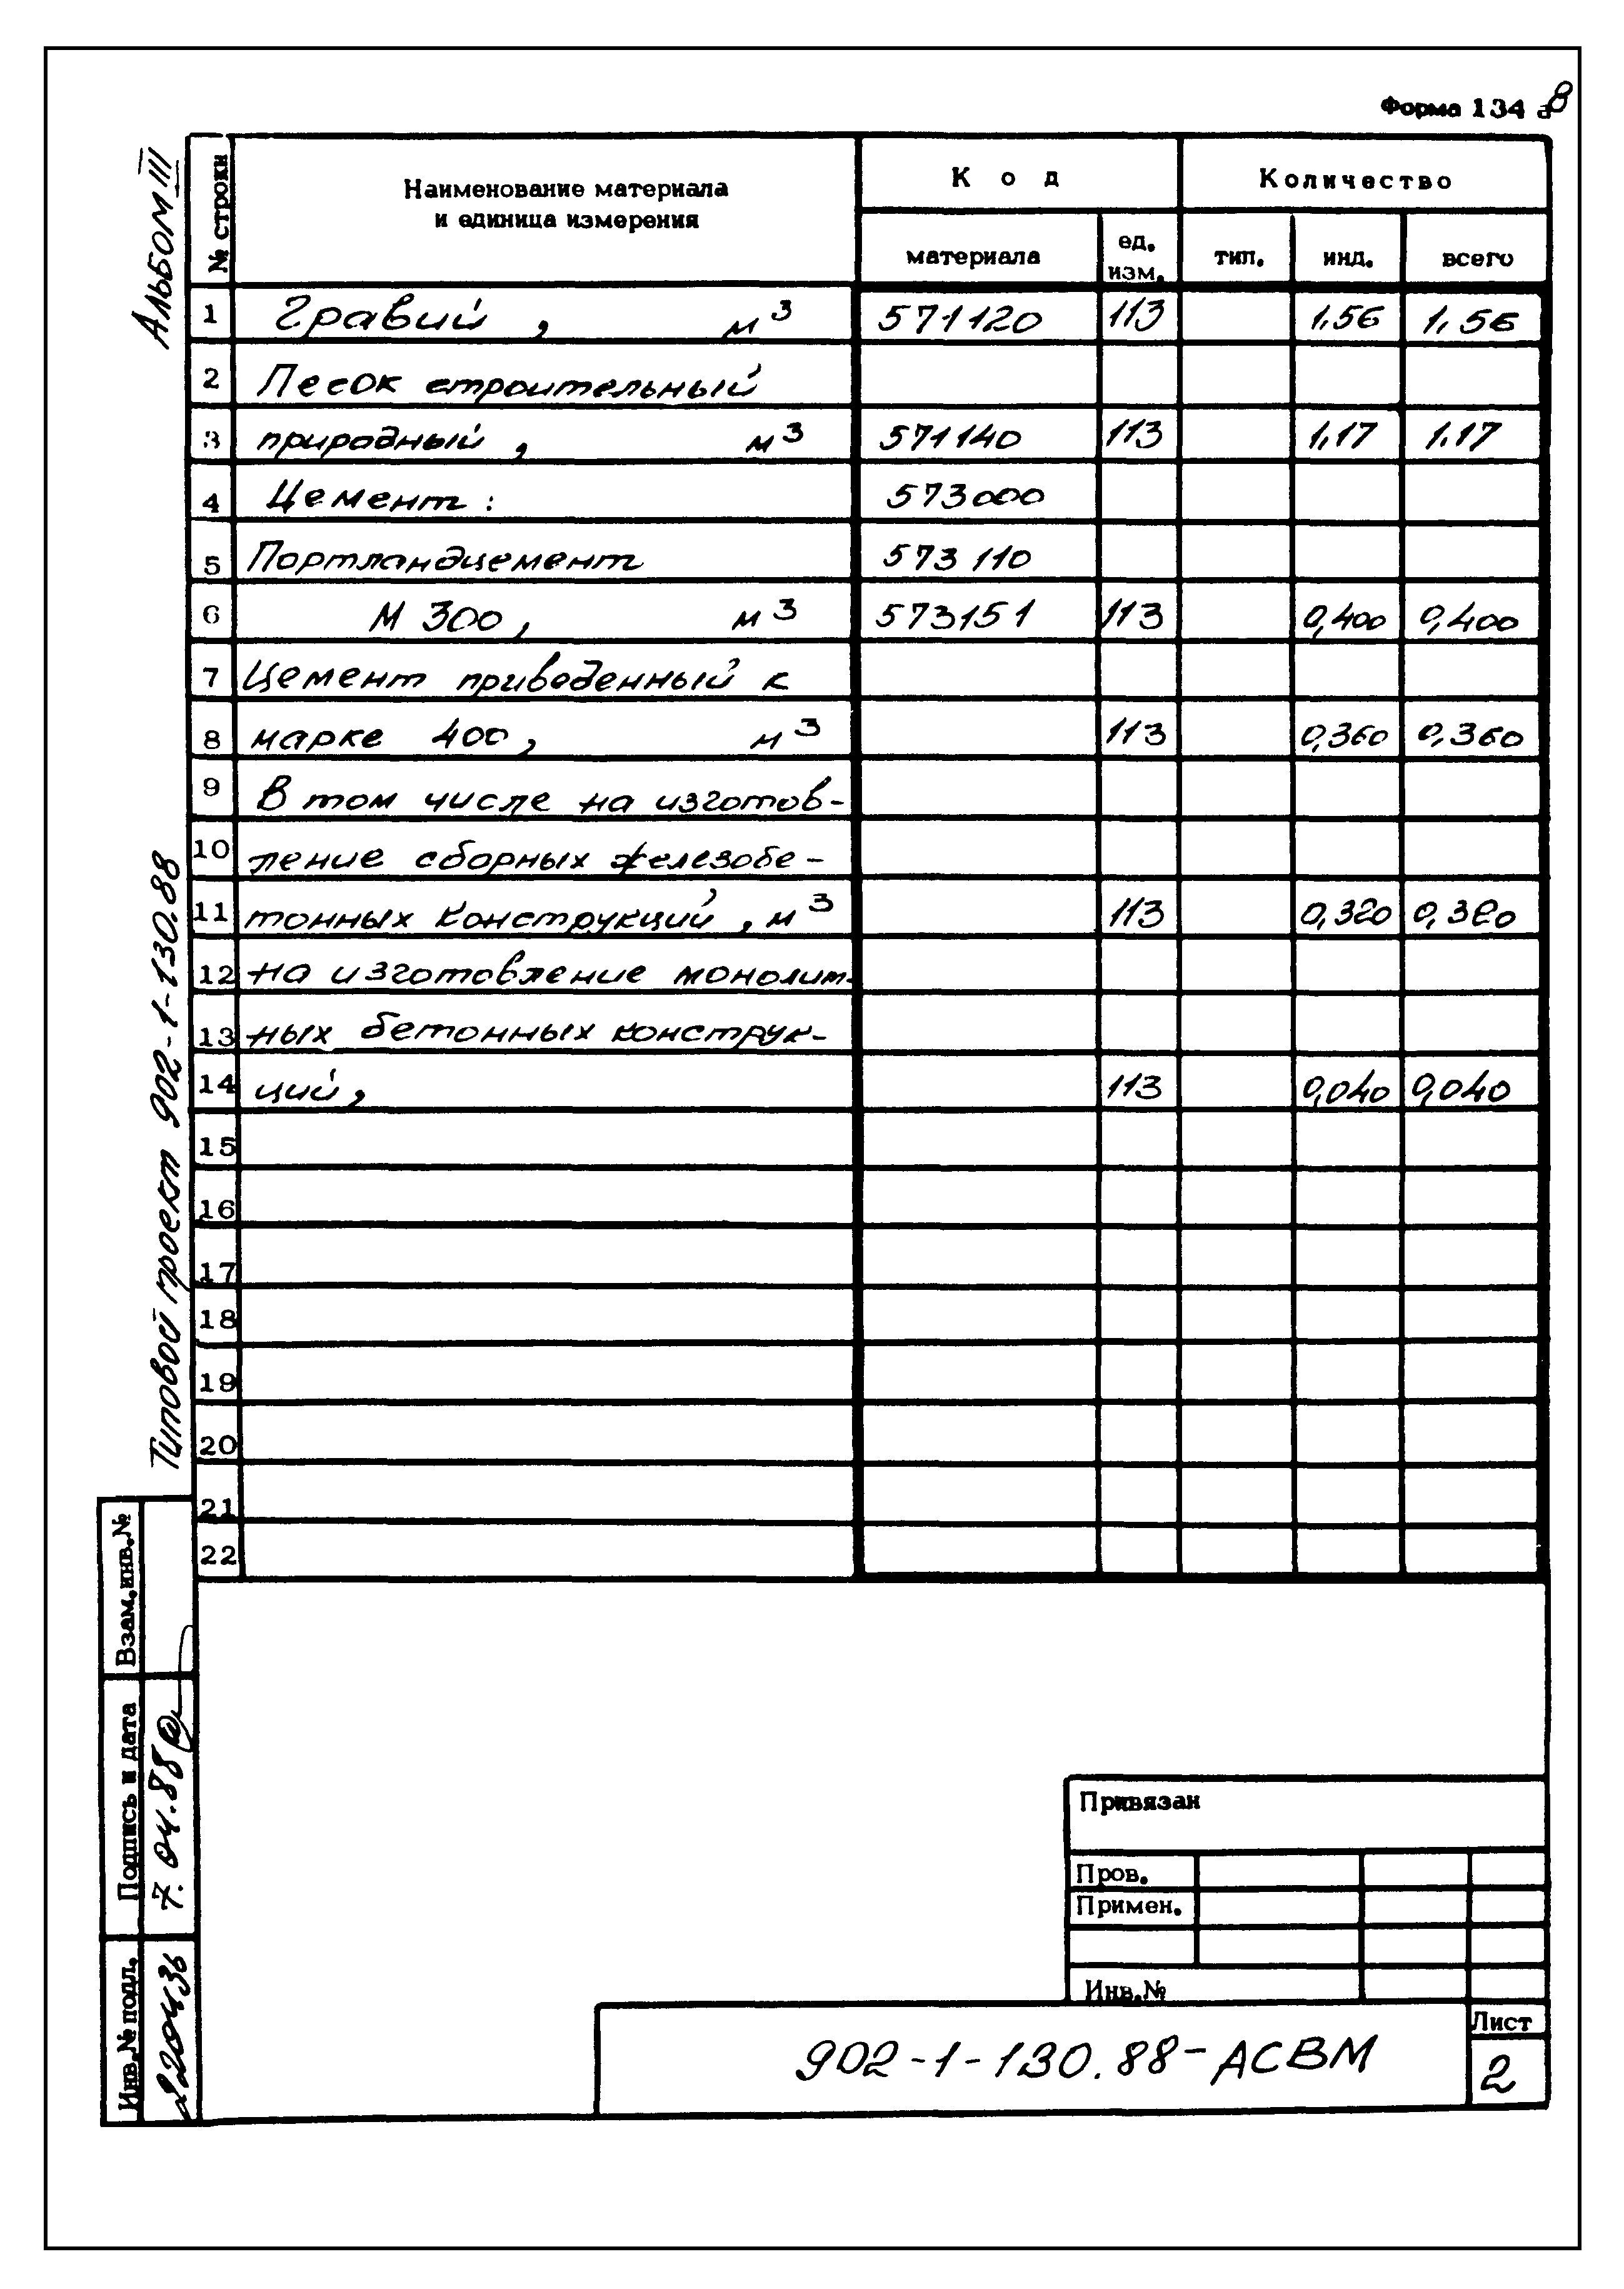 Форма 134 а
8
Альбом III
№ строки
Наименование материала
и единица измерения
К о д
Количество
материала
ед.
изм.
тип.
инд.
всего
1 Гравий , м³ 571120 113 1,56 1,56
2 Песок строительный
3 природный , м³ 571140 113 1,17 1,17
4 Цемент : 573000
5 Портландцемент 573110
6 М 300, м³ 573151 113 0,400 0,400
7 Цемент приведенный к
8 марке 400, м³ 113 0,360 0,360
9 В том числе на изготов-
10 ление сборных железобе-
11 тонных конструкций , м³ 113 0,320 0,320
12 на изготовление монолит-
13 ных бетонных конструк-
14 ций, 113 0,040 0,040
15
16
17
18
19
20
21
22
Типовой проект 902-1-130.88
Взам.инв.№
Подпись и дата
7.04.88
Инв.№ подл.
Привязан
Пров.
Примен.
Инв.№
902-1-130.88-АСВМ
Лист
2